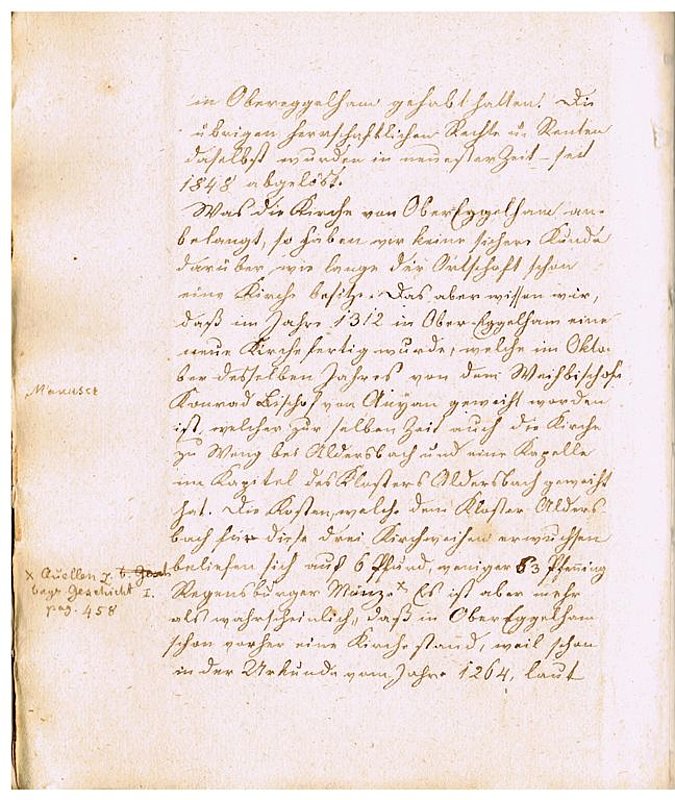 in Obereggelham gehabt hatten. Die
übrigen herrschaftlichen Rechte u. Renten
daselbst wurden in neuester Zeit – seit
1848 abgelöst.
Was die Kirche von OberEggelham an-
belangt, so haben wir keine sichere Kunde
darüber, wie lange die Ortschaft schon
eine Kirche besitze. Das aber wissen wir,
daß im Jahre 1312 in OberEggelham eine
neue Kirche fertig wurde, welche im Okto-
ber desselben Jahres von dem Weihbischofe
Manusct
Konrad Bischof von geweiht worden
ist, welcher zur selben Zeit auch die Kirche
zu Weng bei Aldersbach und eine Kapelle
im Kapitel des Klosters Aldersbach geweiht
hat. Die Kosten, welche dem Kloster Alders-
bach für diese drei Kirchweihen erwuchsen
beliefen sich auf 6 Pfund, weniger 83 Pfenning
x Quellen z. b.
bayr Geschicht I.
pag. 458
Regensburger Münze.x Es ist aber mehr
als wahrscheinlich, daß in OberEggelham
schon vorher eine Kirche stand, weil schon
in der Urkunde vom Jahre 1264, laut